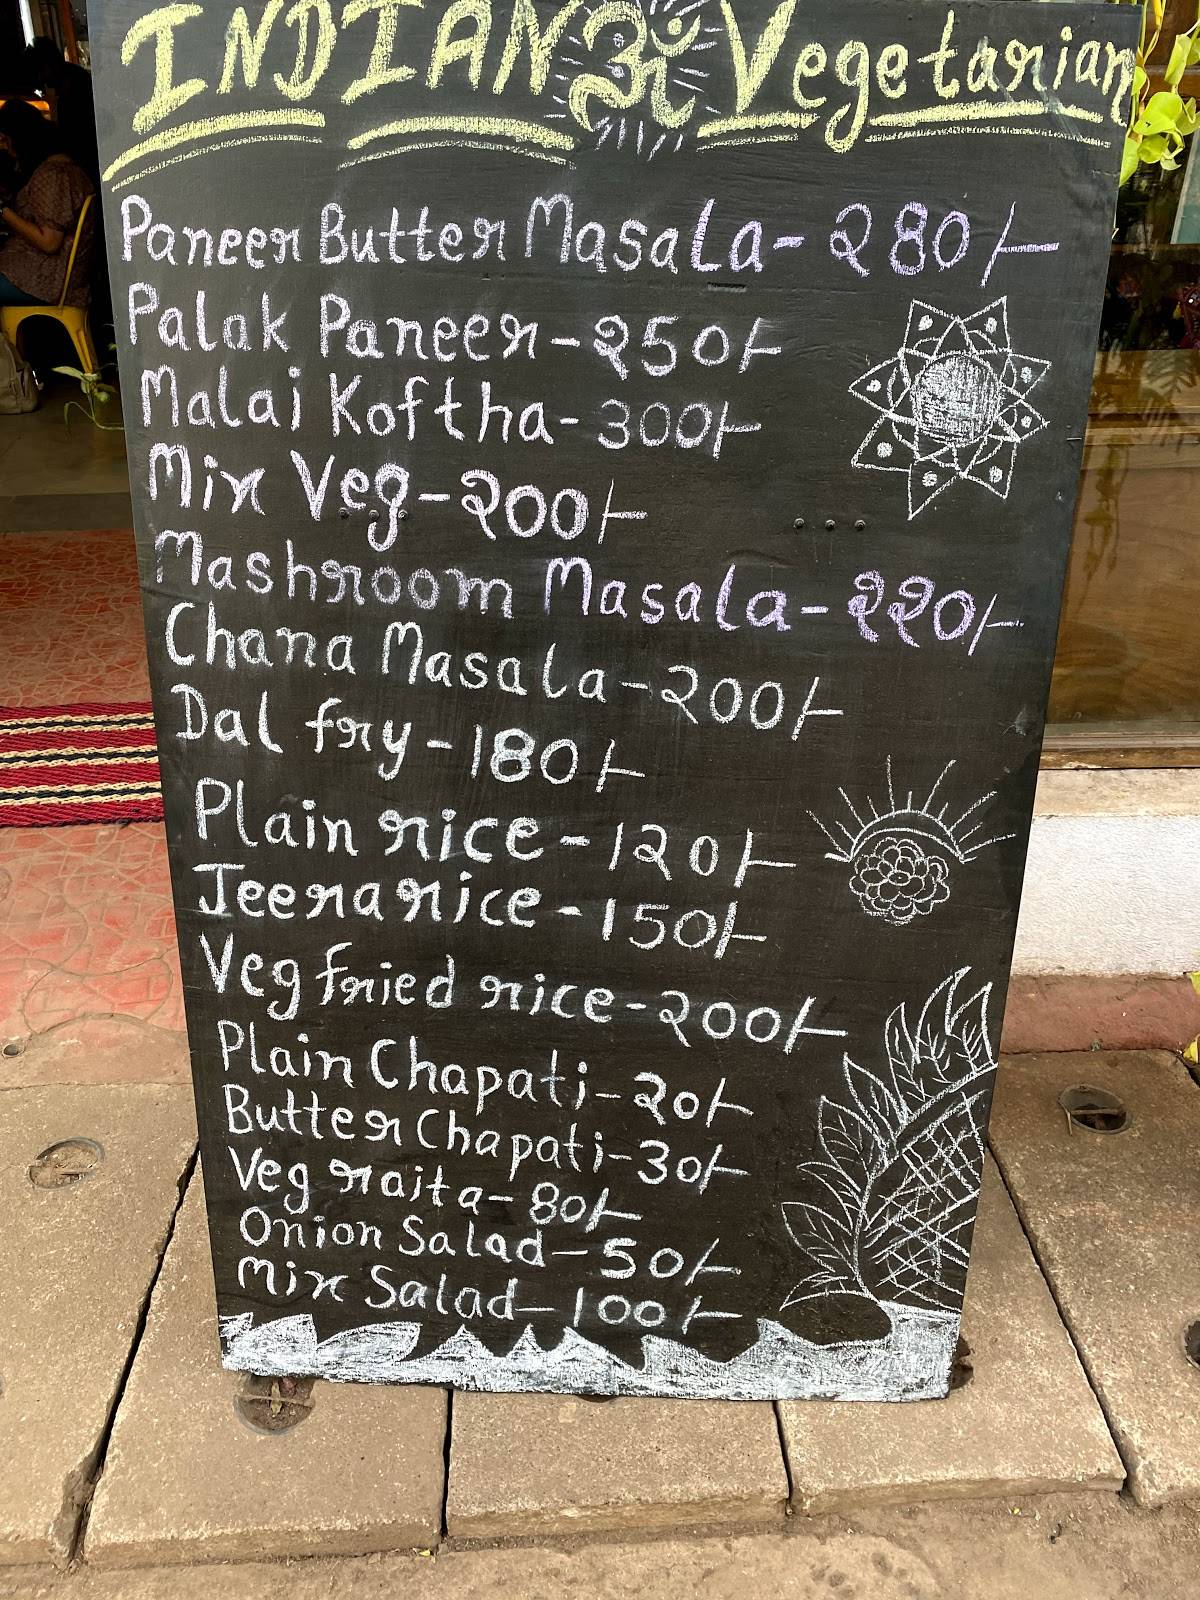 INDIAN ॐ Vegetarian
Paneer Butter Masala- 280/-
Palak Paneer-250/-
Malai Koftha-300/-
Mix Veg-200/-
Mashroom Masala-220/-
Chana Masala-200/-
Dal fry-180/-
Plain rice-120/-
Jeera rice-150/-
Veg fried rice-200/-
Plain Chapati-20/-
Butter Chapati-30/-
Veg raita-80/-
Onion Salad-50/-
Mix Salad-100/-